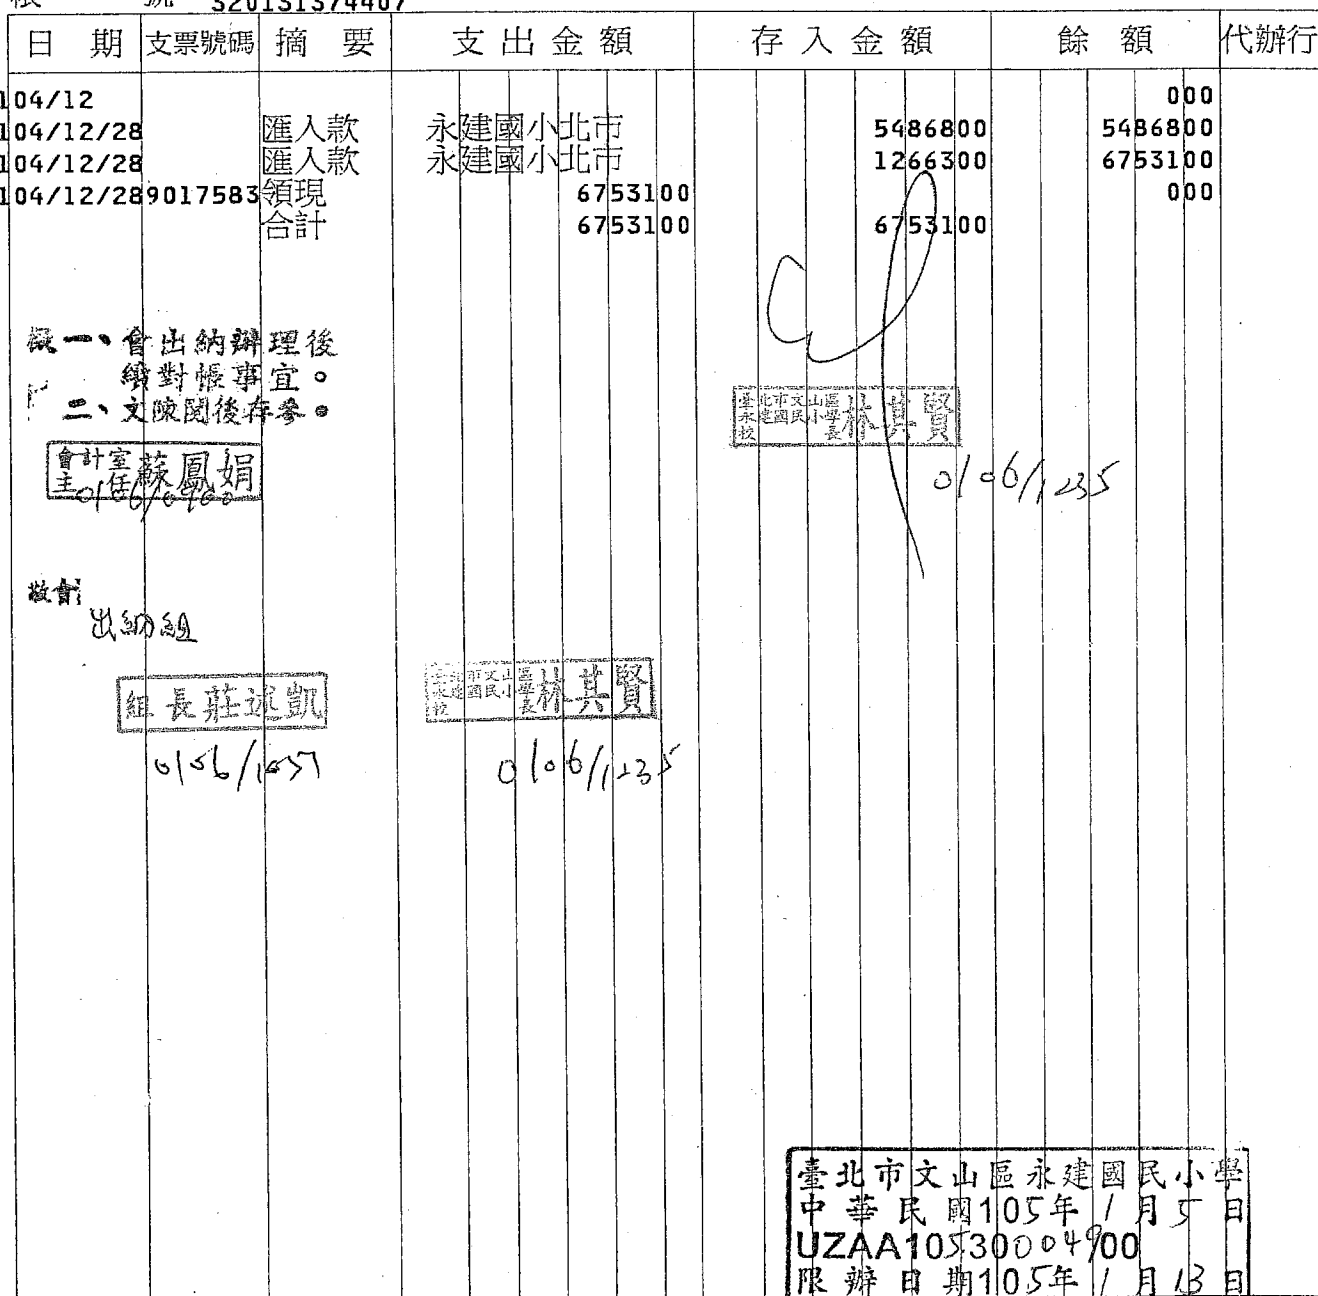 帳 號 320131374407
日 期 支票號碼 摘 要 支 出 金 額 存 入 金 額 餘 額 代辦行
104/12 000
104/12/28 匯入款 永建國小北市 5486800 5486800
104/12/28 匯入款 永建國小北市 1266300 6753100
104/12/28 9017583 領現 6753100 000
合計 6753100 6753100
擬一、會出納辦理後
續對帳事宜。
二、文陳閱後存參。
臺北市文山區
永建國民小學
校長 林其賢
0106/1235
會計室
主任 蘇鳳娟
0106/0900
敬會
出納組
組長莊述凱
0106/1057
臺北市文山區
永建國民小學
校長 林其賢
0106/1235
臺北市文山區永建國民小學
中華民國105年1月5日
UZAA10530004900
限辦日期105年1月13日